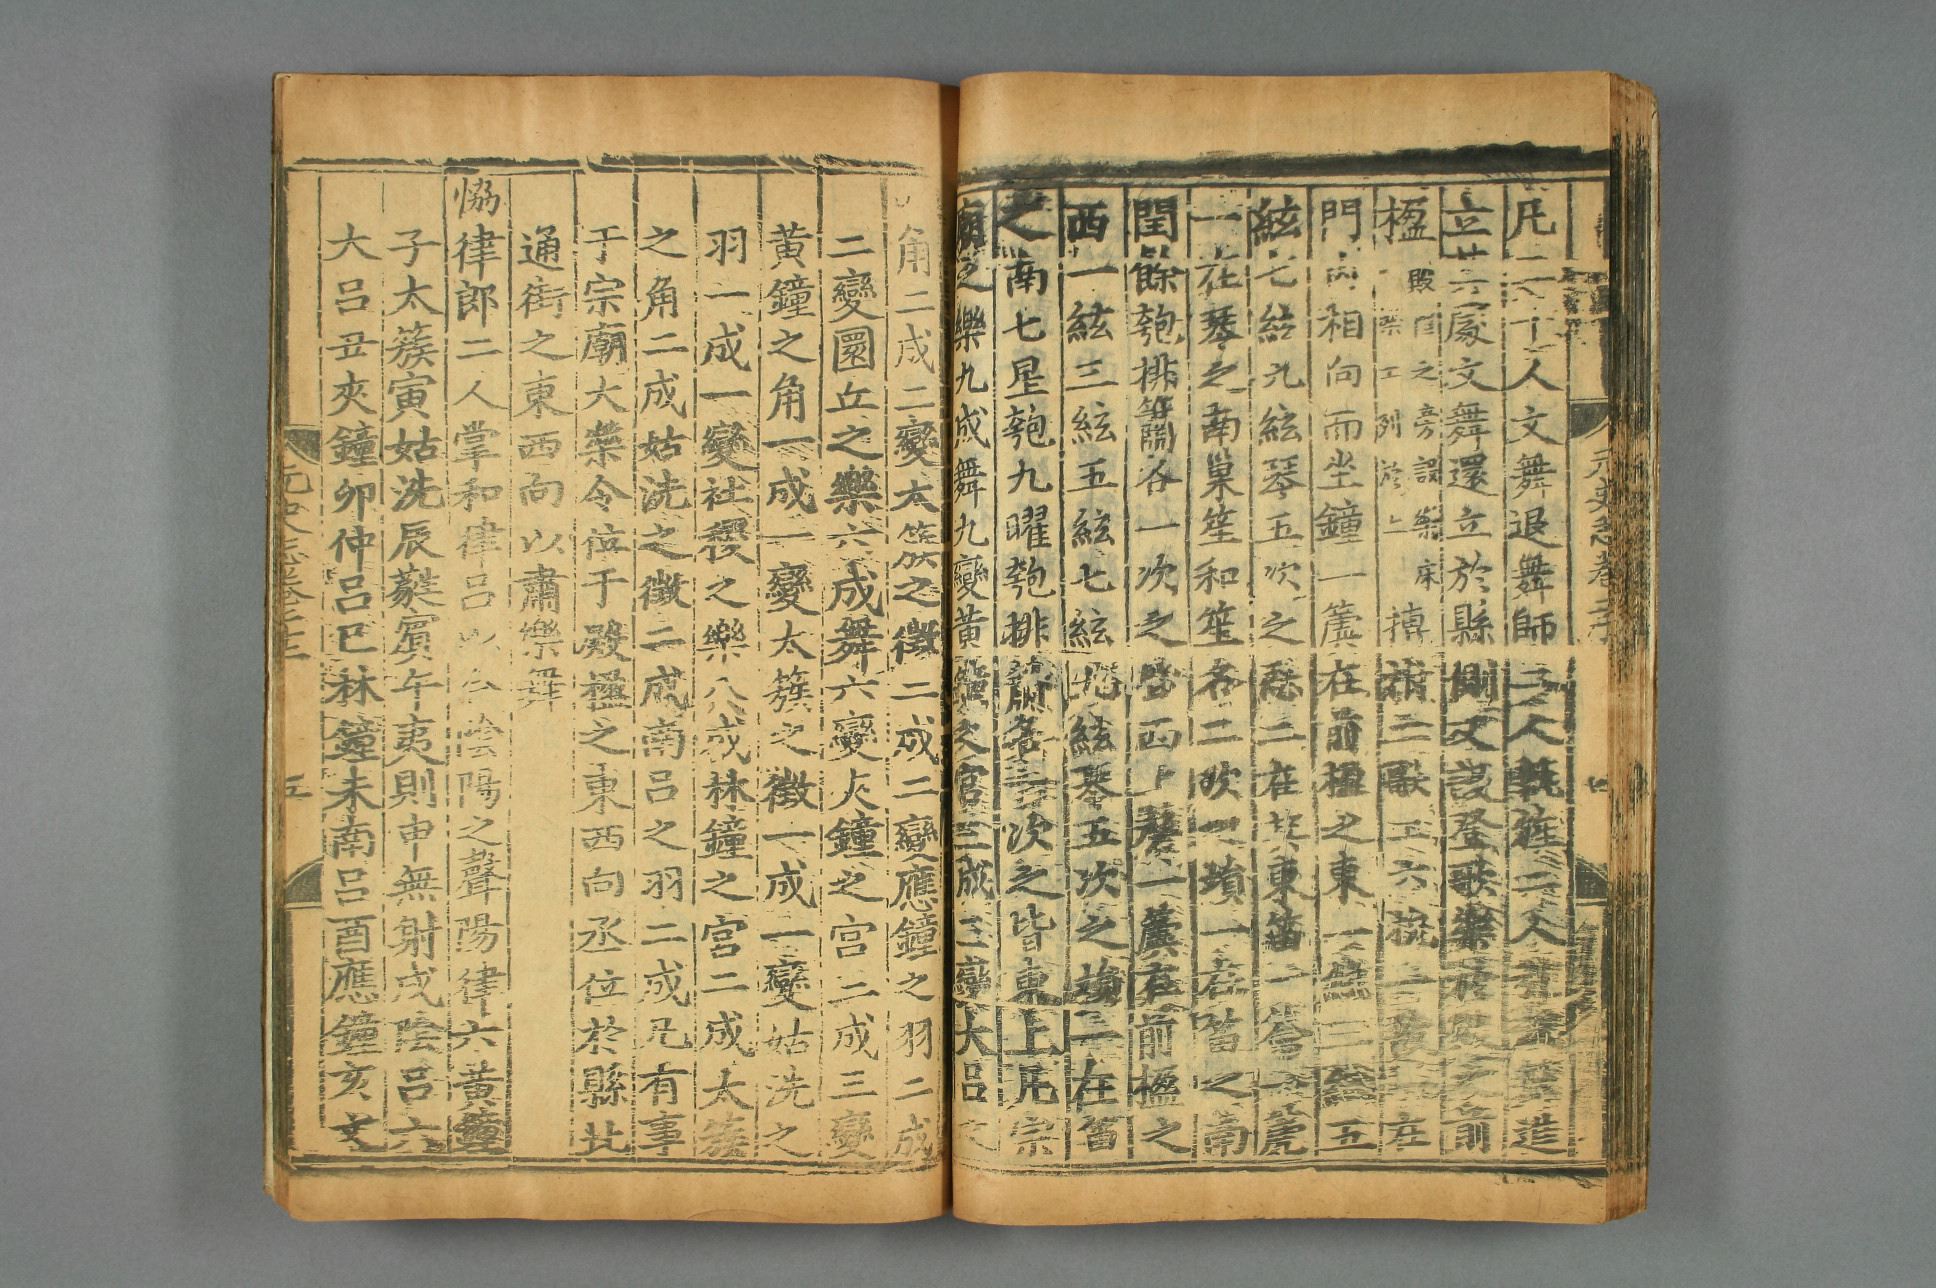 凡二十人文舞退舞師二人執旌二人
立其處文舞還立於縣側又設登歌樂於殿之前
楹殿陛之旁設樂床
樂工列於上搏拊二歌工六柷一敔一在
門内相向而坐鐘一簴在前楹之東一絃三絃五
絃七絃九絃琴五次之瑟二在其東笛一籥一篪
一在琴之南巢笙和笙各二次之塤一在笛之南
閏餘匏排簫各一次之皆西上磬一簴在前楹之
西一絃三絃五絃七絃九絃琴五次之瑟二在
之南七星匏九曜匏排簫各一次之皆東上凡宗
廟之樂九成舞九變黃鐘之宮三成三變大呂之
角二成二變太簇之徵二成二變應鐘之羽二成
二變圜丘之樂六成舞六變夾鐘之宮二成三變
黃鐘之角一成一變太簇之徵一成一變姑洗之
羽一成一變社稷之樂八成林鐘之宮二成太簇
之角二成姑洗之徵二成南呂之羽二成凡有事
于宗廟大樂令位于殿楹之東西向丞位於縣北
通街之東西向以肅樂舞
恊律郎二人掌和律呂以合陰陽之聲陽律六黃鐘
子太簇寅姑洗辰蕤賓午夷則申無射戌陰呂六
大呂丑夾鐘卯仲呂巳林鐘未南呂酉應鐘亥文
五